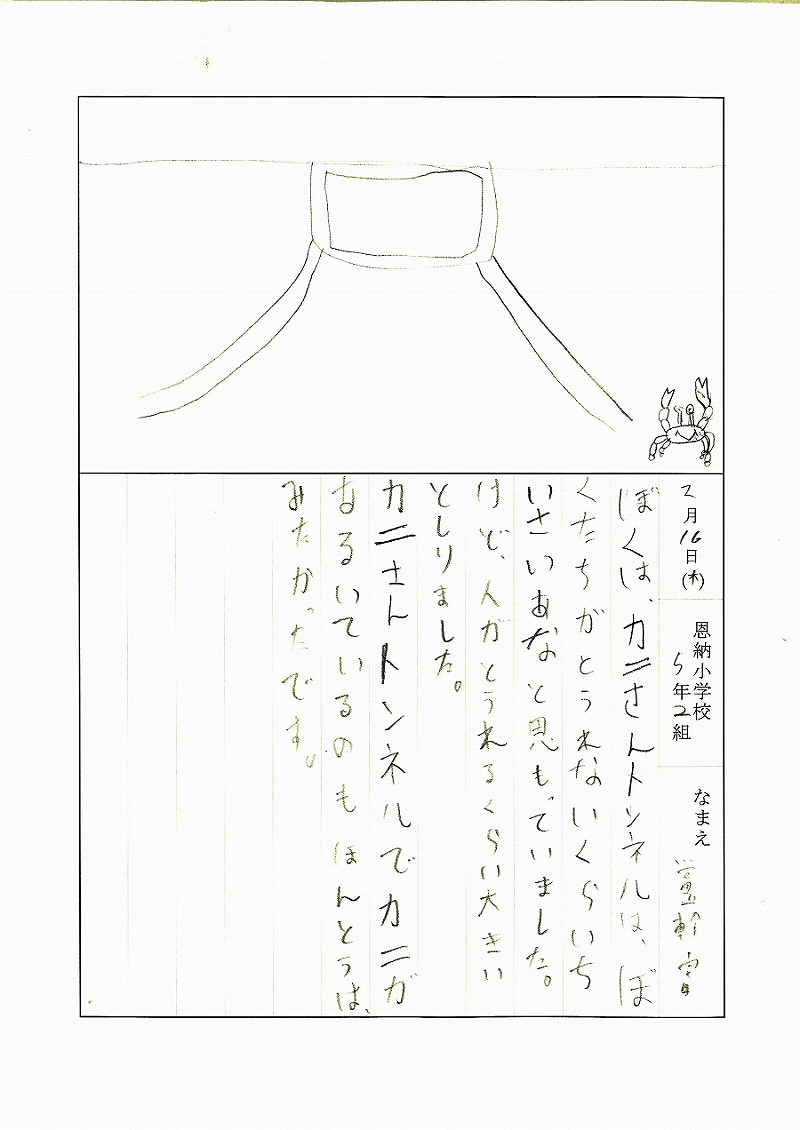 2月16日(木)
恩納小学校
5年2組
なまえ
ぼくは、カニさんトンネルは、ぼ
くたちがとうれないくらいち
いさいあなと思もっていました。
けど、人がとうれるくらい大きい
としりました。
カニさんトンネルでカニが
あるいているのもほんとうは、
みたかったです。